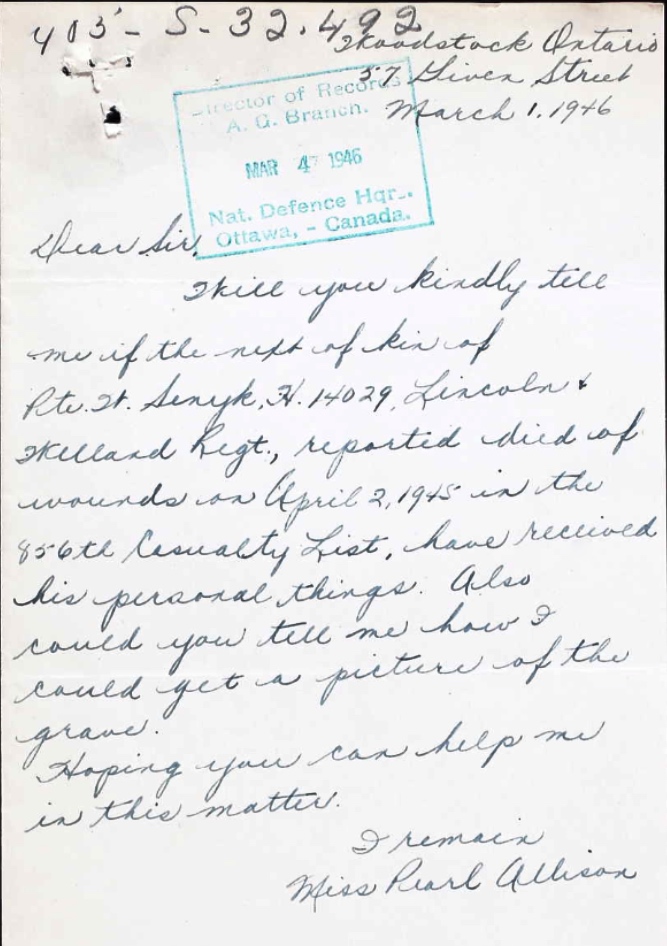 405 - S - 32.492
Woodstock Ontario
57 Given Street
March 1, 1946
Director of Records
A. G. Branch.
MAR 4 1946
Nat. Defence Hqr..
Ottawa, - Canada.
Dear Sir,
Will you kindly tell
me if the next of kin of
Pte. W. Senyk, H. 14029, Lincoln &
Welland Regt., reported died of
wounds on April 2, 1945 in the
856th Casualty List, have received
his personal things. Also
could you tell me how I
could get a picture of the
grave.
Hoping you can help me
in this matter.
I remain
Miss Pearl Allison